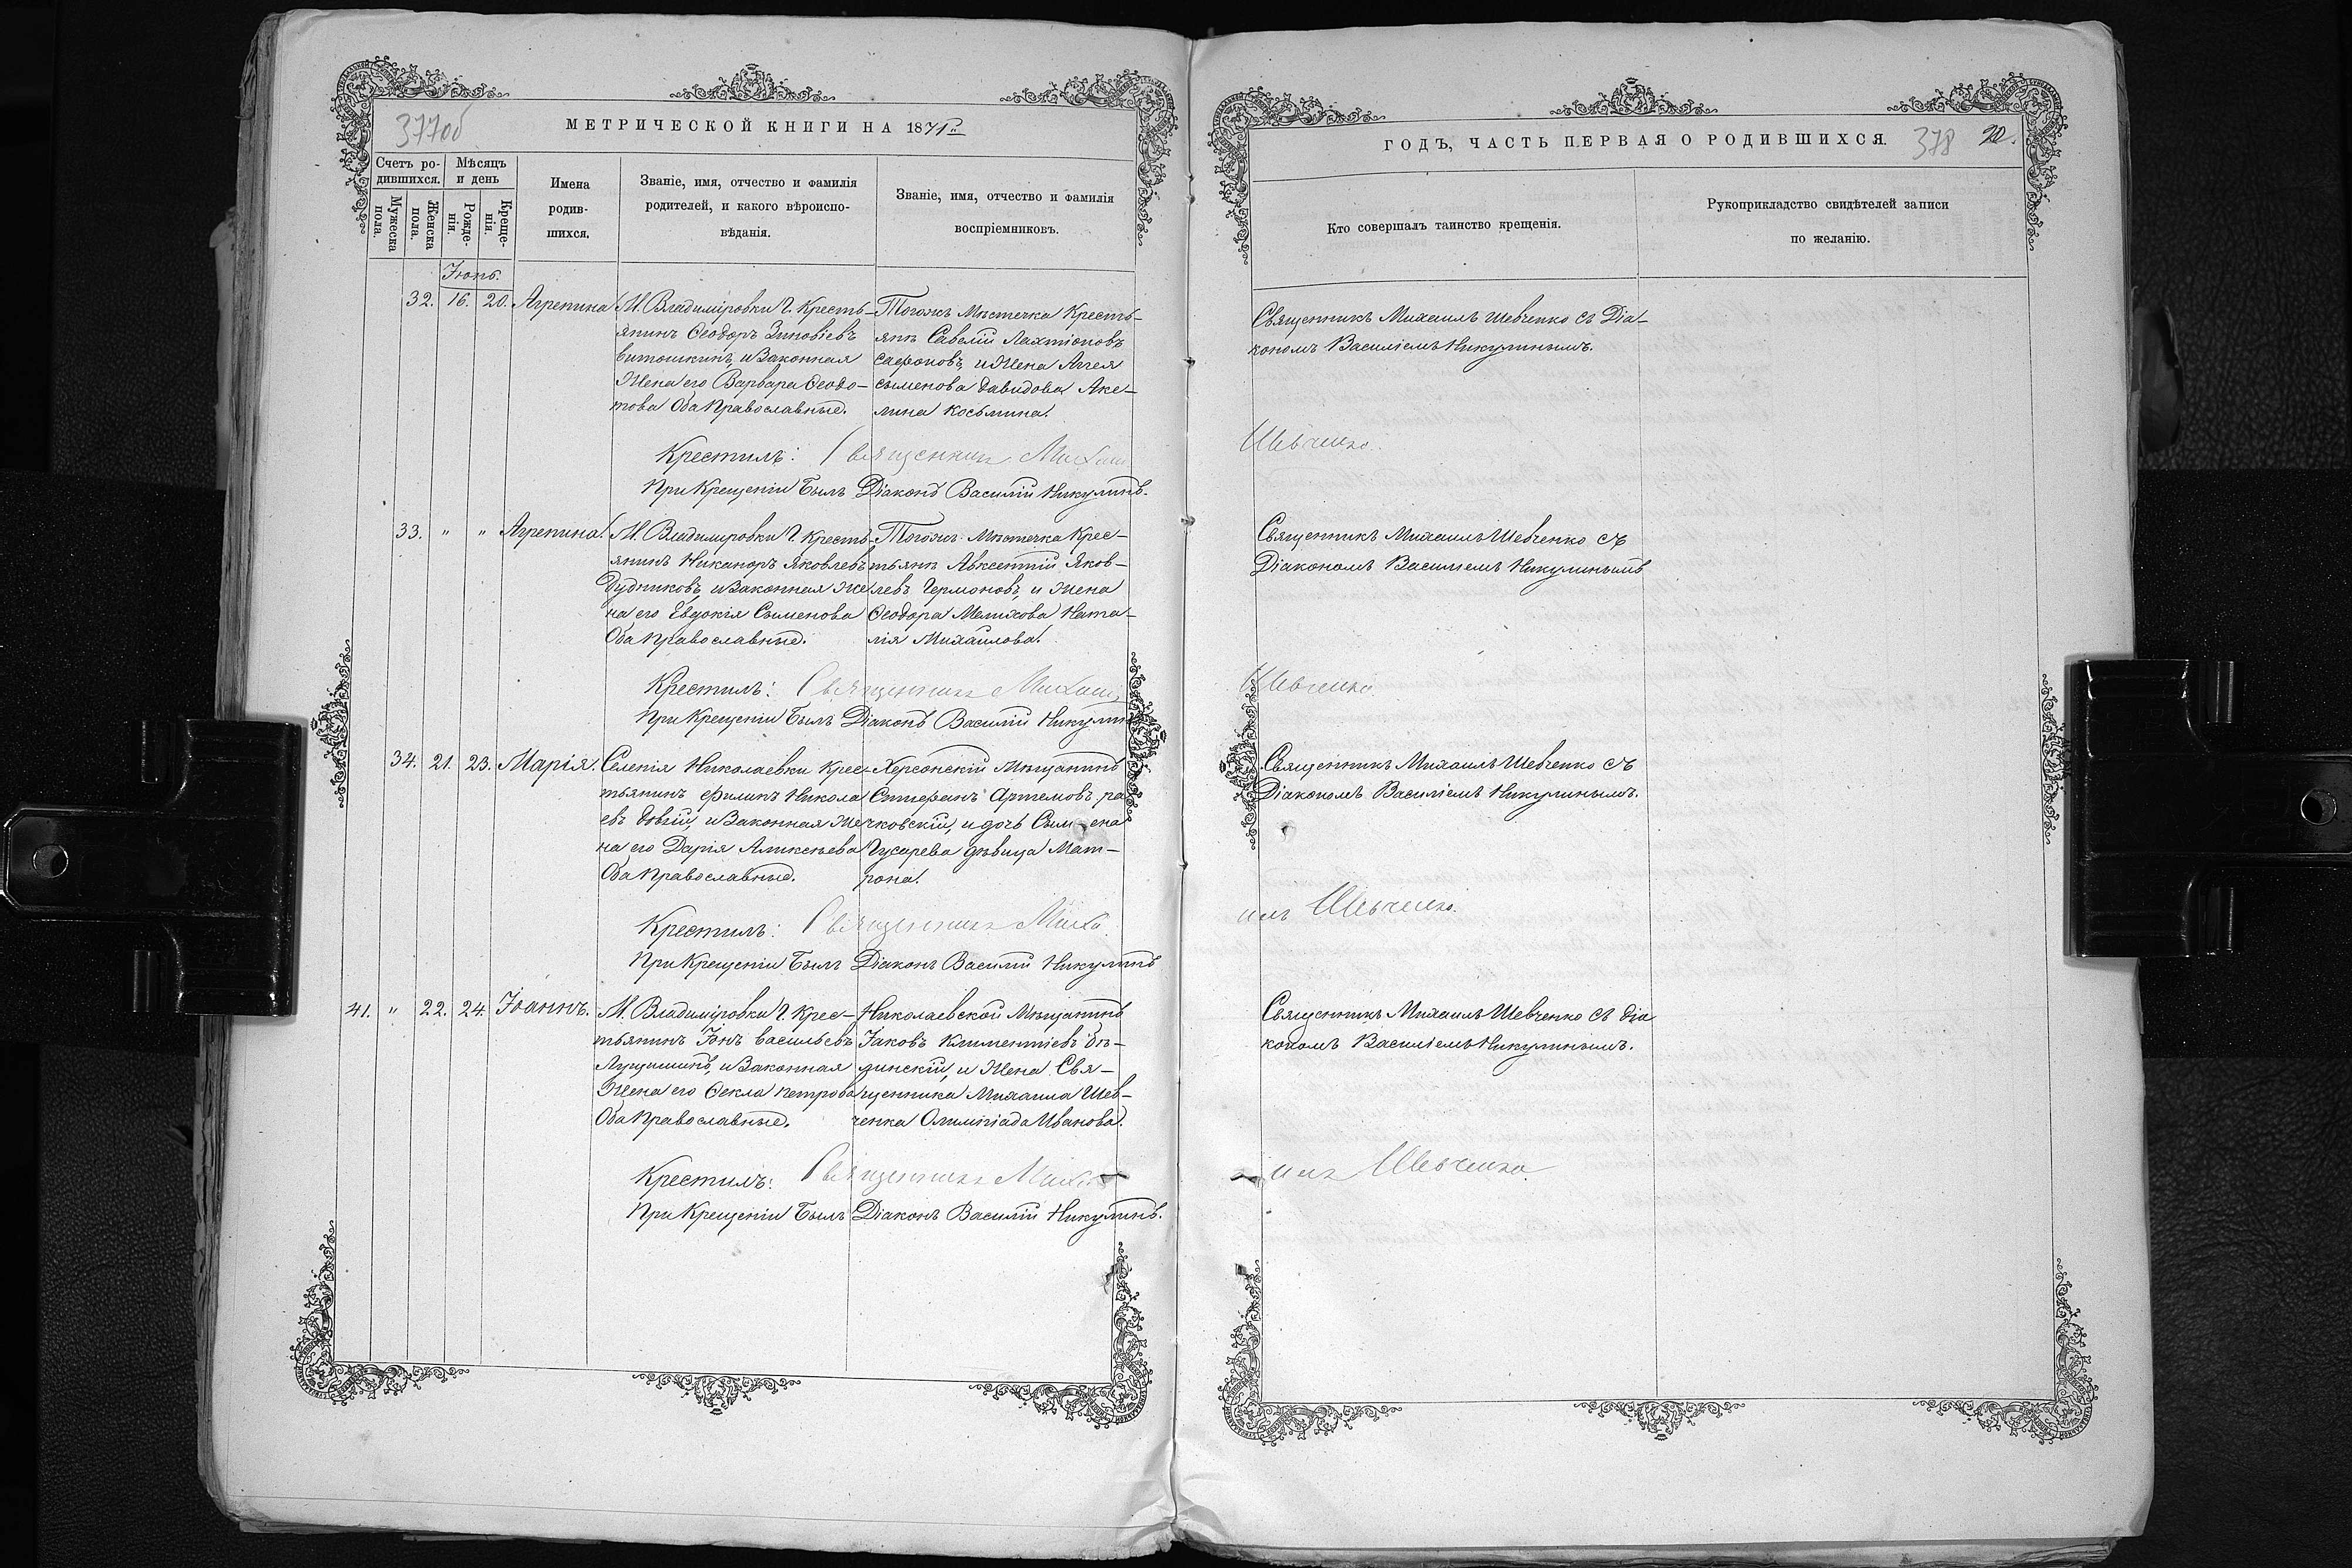 377об
МЕТРИЧЕСКОЙ КНИГИ НА 1871й
Счетъ ро-
дившихся.
Мѣсяцъ
и день
Мужеска
пола.
Женска
пола.
Рожде-
нія.
Креще-
нія.
Имена
родив-
шихся.
Званіе, имя, отчество и фамилія
родителей, и какого вѣроиспо-
вѣданія.
Званіе, имя, отчество и фамилія
воспріемниковъ.
Іюнь.
32. 16. 20. Агрепина
М. Владиміровки Г. Кресть-
янинъ Ѳеодоръ Зиновіевъ
Витошкинъ, и Законная
Жена его Варвара Ѳеодо-
това Оба Православные.
Тогожъ Мѣстечка Кресть-
янъ Савелій Лахтіоновъ
Сафоновъ, и Жена Аггея
Сыменова Давидова Аке-
лина Косьмина.
Крестилъ: Священникъ Михаилъ
При Крещеніи Былъ Діаконъ Василій Никулинъ.
33. " " Агрепина.
М. Владиміровки Г. Кресть-
янинъ Никаноръ Яковлевъ
Дудниковъ, и Законная Же
на его Евдокія Сыменова
Оба Православные.
Тогожъ Мѣстечка Крес-
тьянъ Авксентій Яков-
левъ Чермоновъ, и Жена
Ѳеодора Мелихова Ната-
лія Михайлова.
Крестилъ: Священникъ Михаилъ
При Крещеніи Былъ Діаконъ Василій Никулинъ
34. 21. 23. Марія.
Селенія Николаевки Крес-
тьянинъ Филипъ Никола
евъ Довгій, и Законная Же
на его Дарія Аликсѣева
Оба Православные.
Херсонскій Мѣщанинъ
Стеѳанъ Артемовъ ра
чковскій, и дочь Сымена
Гусарева дѣвица Мат-
рона.
Крестилъ: Священникъ Миха
При Крещеніи Былъ Діаконъ Василій Никулинъ
41. " 22. 24. Іоаннъ.
М. Владиміровки Г. Крес-
тьянинъ Іонъ Васильевъ
Луцишинъ, и Законная
Жена его Ѳекла Петрова
Оба Православные.
Николаевской Мѣщанинъ
Іаковъ Климентіевъ Дѣ-
линскій, и Жена Свя-
щенника Михаила Шев-
ченка Олимпіада Иванова.
Крестилъ: Священникъ Миха
При Крещеніи Былъ Діаконъ Василій Никулинъ.
ГОДЪ, ЧАСТЬ ПЕРВАЯ О РОДИВШИХСЯ. 378 20.
Кто совершалъ таинство крещенія.
Рукоприкладство свидѣтелей записи
по желанію.
Священникъ Михаилъ Шевченко съ Діа-
кономъ Василіемъ Никулинымъ.
Шевченко.
Священникъ Михаилъ Шевченко съ
Діакономъ Василіемъ Никулинымъ
Шевченко.
Священникъ Михаилъ Шевченко съ
Діакономъ Василіемъ Никулинымъ.
илъ Шевченко.
Священникъ Михаилъ Шевченко съ діа
кономъ Василіемъ Никулинымъ.
илъ Шевченко.